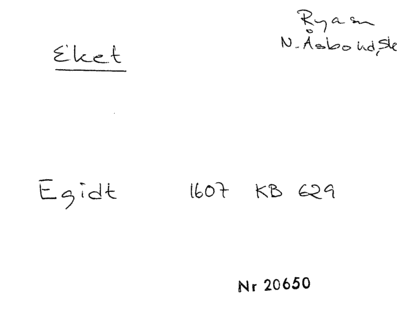 Ryam
Eket
N. Åsbo hd, Sk
Egidt 1607 KB 629
Nr 20650